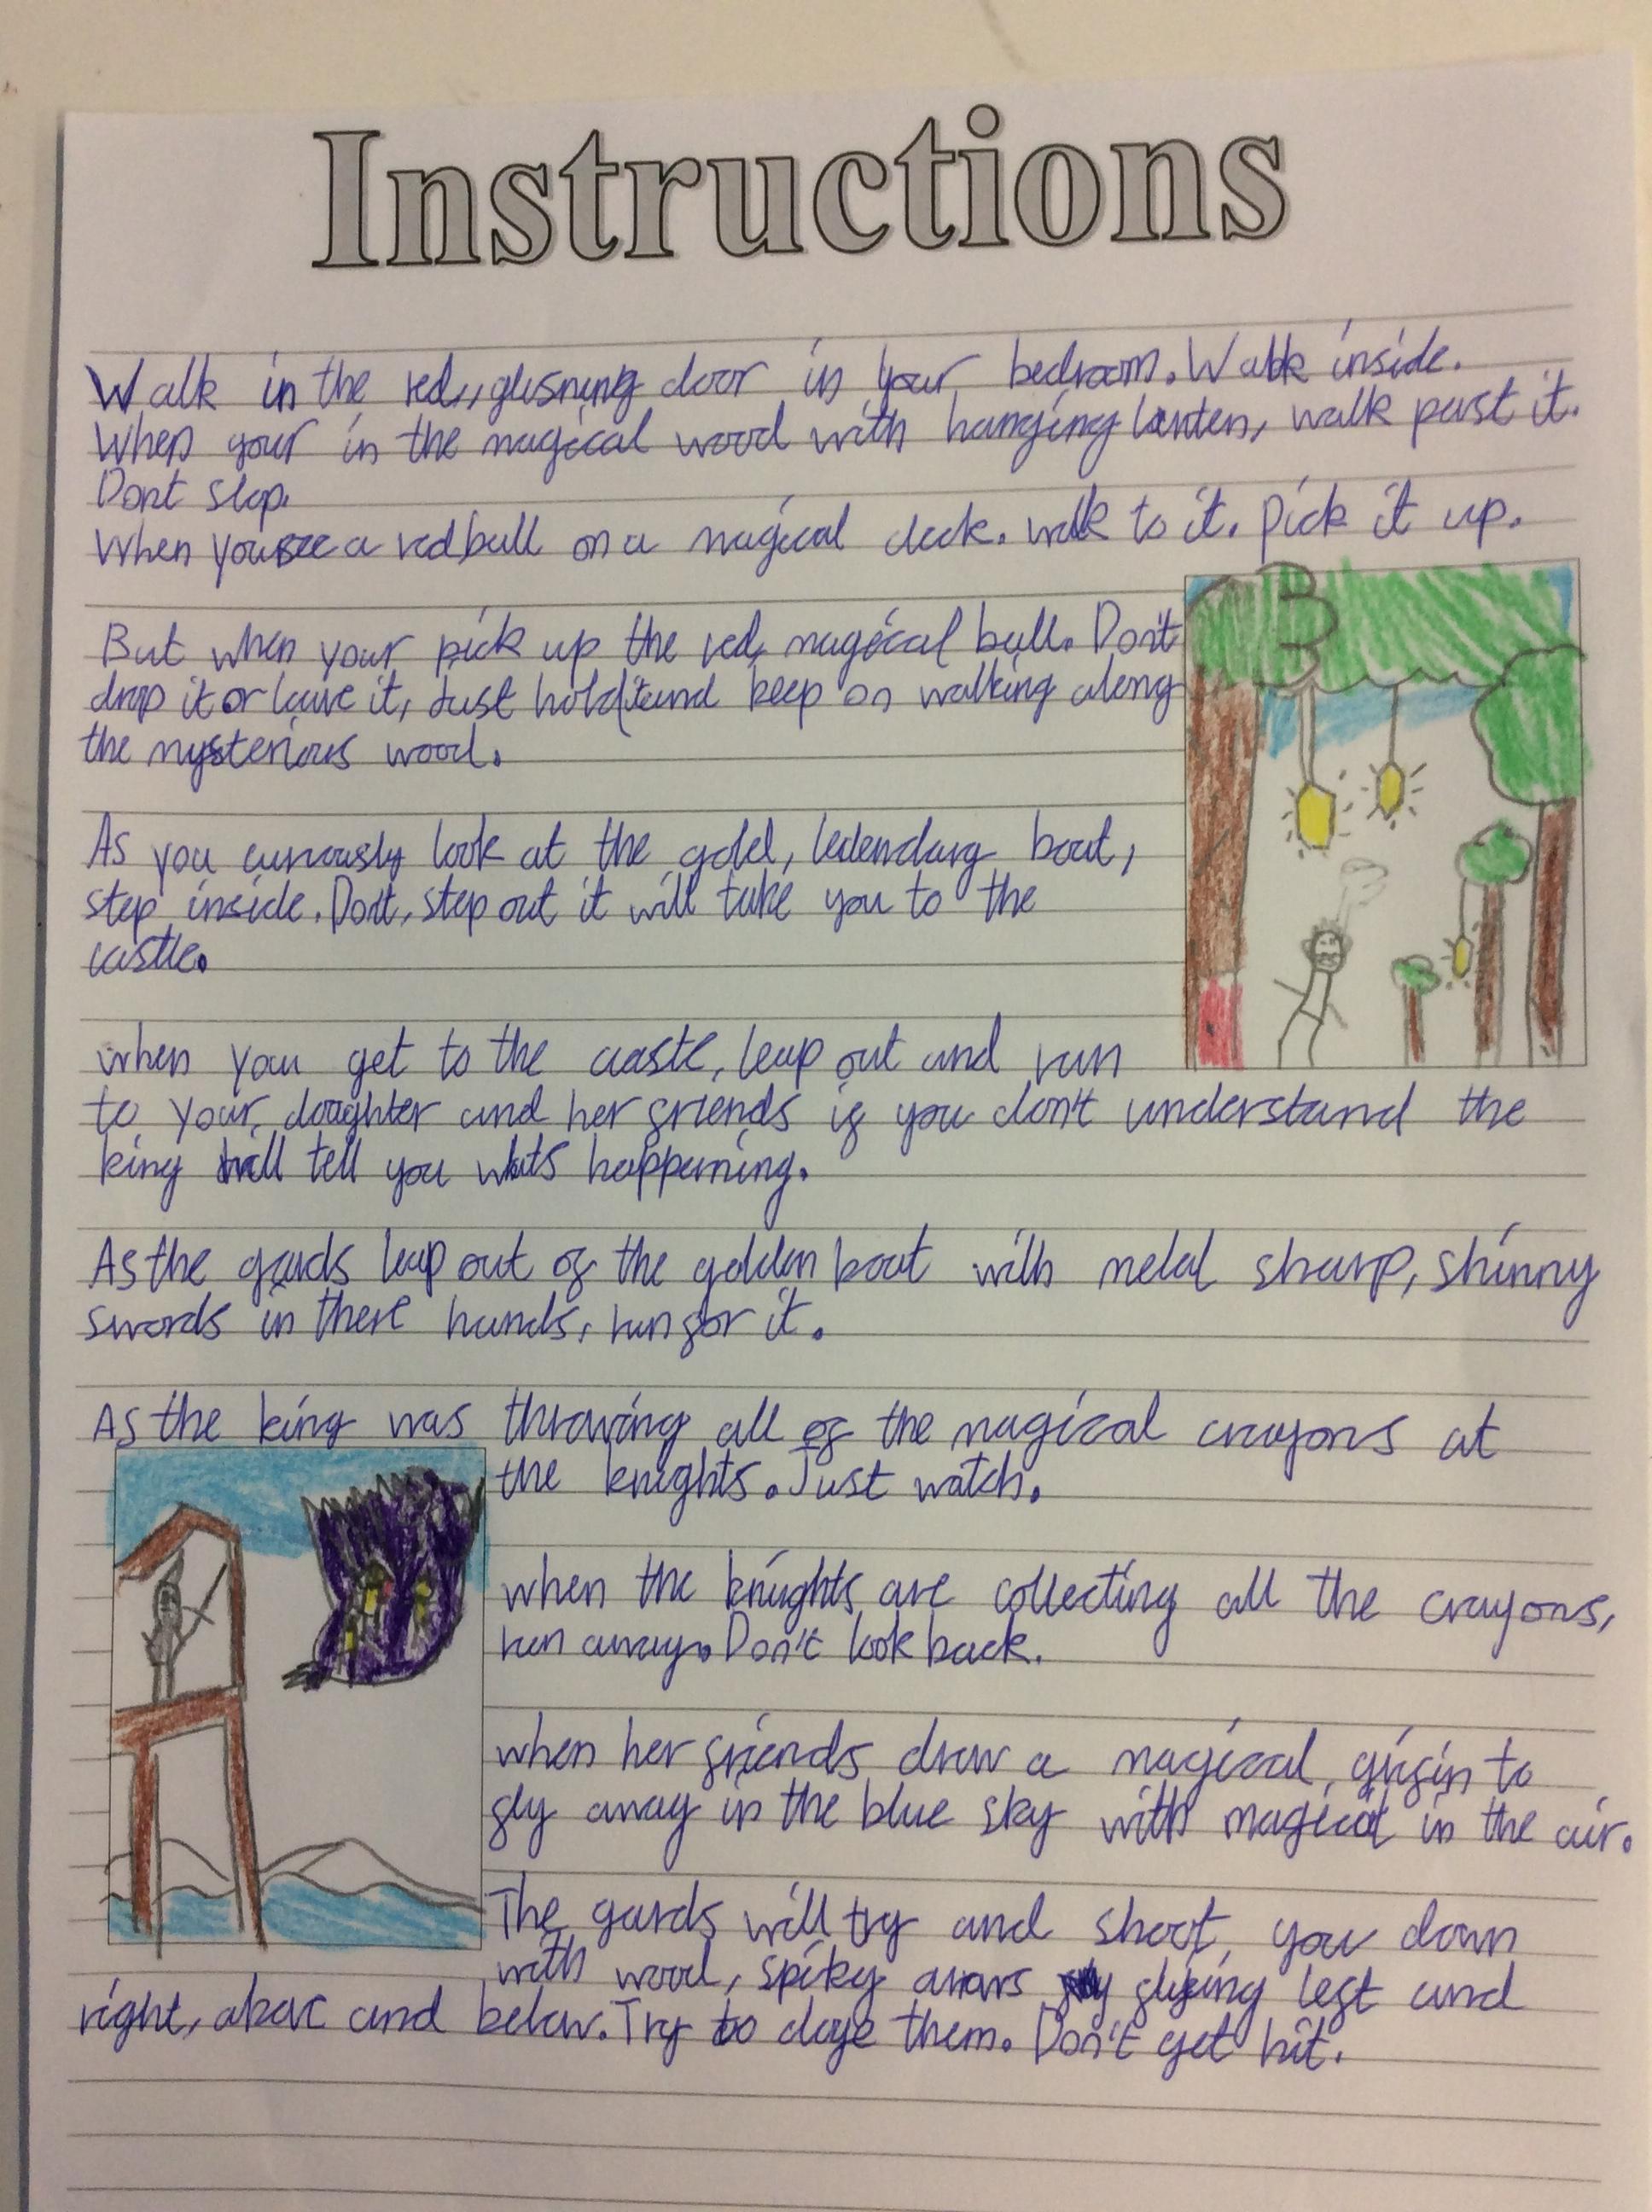 Instructions
Walk in the red, glisning door in your bedroom. Walk inside.
When your in the magical wood with hanging lanten, walk past it.
Dont stop.
When you see a red ball on a magical deck. walk to it. Pick it up.
But when your pick up the red, magical ball. Don't
drop it or leave it, Just hold it and keep on walking along
the mysterious wood.
As you curiously look at the gold, ledendary boat,
step inside. Dont, step out it will take you to the
castle.
when you get to the caastle, leap out and run
to your doughter and her friends if you don't understand the
king will tell you whats happerning.
As the gards leap out of the golden boat with metal sharp, shinny
swords in there hands, run for it.
As the king was throwing all of the magical crayons at
the knights. Just watch.
when the knights are collecting all the crayons,
run away. Don't look back.
when her friends draw a magical, grifin to
fly away in the blue sky with magical in the air.
The gards will try and shoot, you down
with wood, spiky arrows flying left and
right, above and below. Try to doge them. Don't get hit.